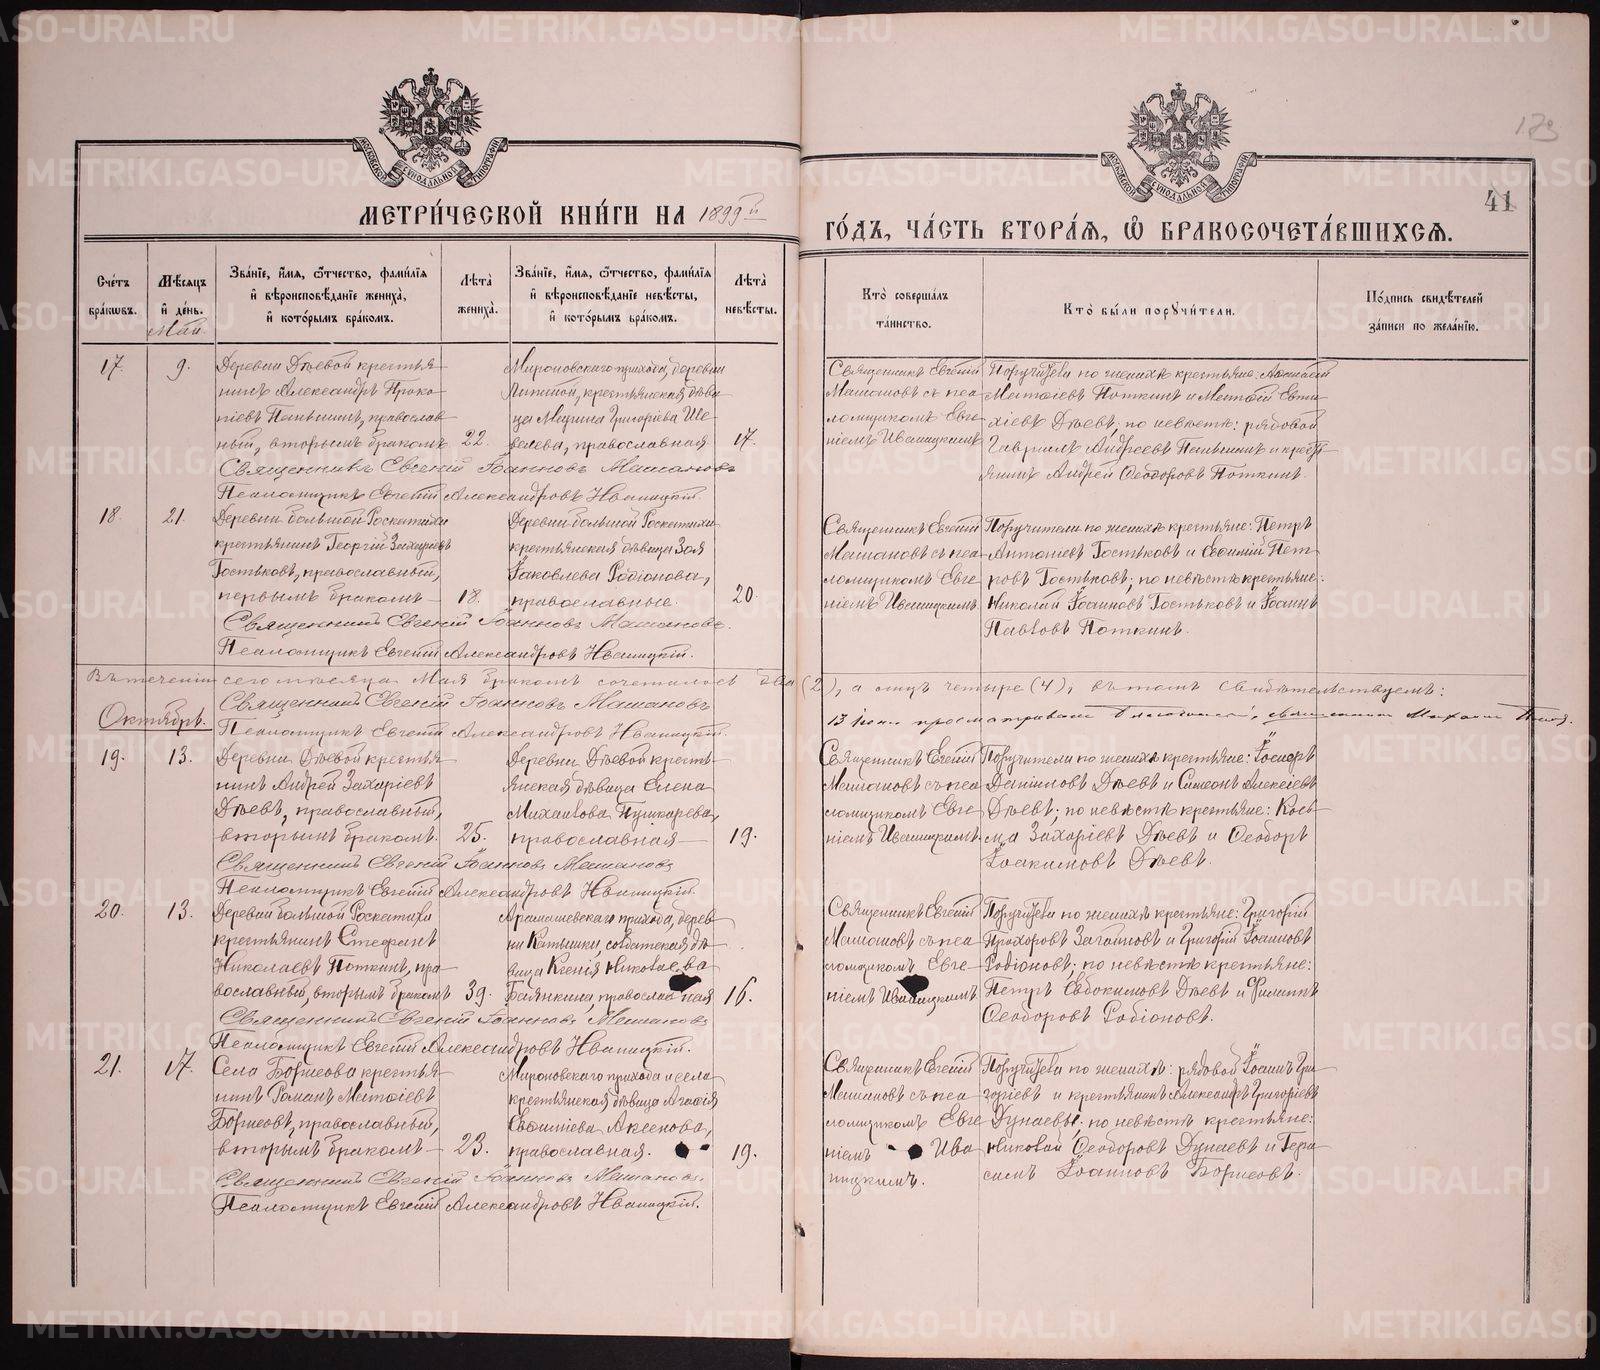 МЕТРИ́ЧЕСКОЙ КНИ́ГИ НА 1899й
ГО́ДЪ, ЧА́СТЬ ВТОРА́Ѧ, Ѽ БРАКОСОЧЕТА́ВШИХСѦ.
173
41
Сче́тъ бра́кѡвъ.
Мѣ́сяцъ и҆ де́нь.
Май.
Зва́нїе, и҆́мѧ, ѻ҆́тчество, фами́лїѧ и҆ вѣроисповѣ́данїе жениха̀, и҆ кото́рымъ бра́комъ.
Лѣта̀ жениха̀.
Зва́нїе, и҆́мѧ, ѻ҆́тчество, фами́лїѧ и҆ вѣроисповѣ́данїе невѣ́сты, и҆ кото́рымъ бра́комъ.
Лѣта̀ невѣ́сты.
Кто̀ соверша́лъ та́инство.
Кто̀ бы́ли порꙋчи́тели.
По́дпись свидѣ́телей за́писи по жела́нїю.
17. 9.
Деревни Дѣевой крестья-
нинъ Александръ Проко-
піевъ Паньшинъ, православ-
ный, вторымъ бракомъ 22.
Мироновскаго прихода, деревни
Липиной, крестьянская дѣви-
ца Марина Григоріева Ше-
велева, православная 17.
Священникъ Евгеній
Машановъ съ пса-
ломщикомъ Евге-
ніемъ Иваницкимъ
Поручители по женихѣ крестьяне:
Матѳіевъ Поткинъ и
хіевъ Дѣевъ; по невѣстѣ: рядовой
Гавріилъ Андреевъ Паньшинъ и кресть-
янинъ Андрей Ѳеодоровъ Поткинъ.
Священникъ Евгеній Іоанновъ Машановъ
Псаломщикъ Евгеній Александровъ Иваницкій.
18. 21.
Деревни большой Роскатихи
крестьянинъ Георгій Захаріевъ
Гостьковъ, православный,
первымъ бракомъ 18.
Деревни большой Роскатихи
крестьянская дѣвица Зоя
Іаковлева Родіонова,
православные. 20.
Священникъ Евгеній
Машановъ съ пса-
ломщикомъ Евге-
ніемъ Иваницкимъ.
Поручители по женихѣ крестьяне: Петръ
Антоніевъ Гостьковъ и Евѳимій Пет-
ровъ Гостьковъ; по невѣстѣ крестьяне:
Николай Іоанновъ Гостьковъ и Іоаннъ
Павловъ Поткинъ.
Священникъ Евгеній Іоанновъ Машановъ.
Псаломщикъ Евгеній Александровъ Иваницкій.
Въ теченіи сего мѣсяца Мая бракомъ сочеталось два (2), а лицъ четыре (4), въ томъ свидѣтельствуемъ:
Священникъ Евгеній Іоанновъ Машановъ
Псаломщикъ Евгеній Александровъ Иваницкій.
13 Іюня просматривалъ Благочинный, священникъ Михаилъ
Октябрь.
19. 13.
Деревни Дѣевой крестья-
нинъ Андрей Захаріевъ
Дѣевъ, православный,
вторымъ бракомъ. 25.
Деревни Дѣевой кресть-
янская дѣвица Елена
Михаилова Пушкарева,
православная 19.
Священникъ Евгеній
Машановъ съ пса-
ломщикомъ Евге-
ніемъ Иваницкимъ
Поручители по женихѣ крестьяне: Іосифъ
Даніиловъ Дѣевъ и Симеонъ Алексіевъ
Дѣевъ; по невѣстѣ крестьяне: Кось-
ма Захаріевъ Дѣевъ и Ѳеодоръ
Іоакимовъ Дѣевъ.
Священникъ Евгеній Іоанновъ Машановъ
Псаломщикъ Евгеній Александровъ Иваницкій.
20. 13.
Деревни большой Роскатихи
крестьянинъ Стефанъ
Николаевъ Поткинъ, пра-
вославный, вторымъ бракомъ 39.
Арамашевскаго прихода, дерев-
ни Катышки, солдатская дѣ-
вица Ксенія Николаева
Балянкина, православная 16.
Священникъ Евгеній
Машановъ съ пса-
ломщикомъ Евге-
ніемъ Иваницкимъ
Поручители по женихѣ крестьяне: Григорій
Прохоровъ Загайновъ и Григорій Іоанновъ
Родіоновъ; по невѣстѣ крестьяне:
Петръ Евдокимовъ Дѣевъ и Филиппъ
Ѳеодоровъ Родіоновъ.
Священникъ Евгеній Іоанновъ Машановъ
Псаломщикъ Евгеній Александровъ Иваницкій.
21. 17.
Села Борисова крестья-
нинъ Романъ Матѳіевъ
Борисовъ, православный,
вторымъ бракомъ 23.
Мироновскаго прихода и села
крестьянская дѣвица Агафія
Евѳиміева Аксенова,
православная. 19.
Священникъ Евгеній
Машановъ съ пса-
ломщикомъ Евге
ніемъ Ива
ницкимъ.
Поручители по женихѣ: рядовой Іоаннъ Гри-
горіевъ и крестьянинъ Александръ Григоріевъ
Дунаевы; по невѣстѣ крестьяне:
Николай Ѳеодоровъ Дунаевъ и Гера-
симъ Іоанновъ Борисовъ.
Священникъ Евгеній Іоанновъ Машановъ.
Псаломщикъ Евгеній Александровъ Иваницкій.
METRIKI.GASO-URAL.RU